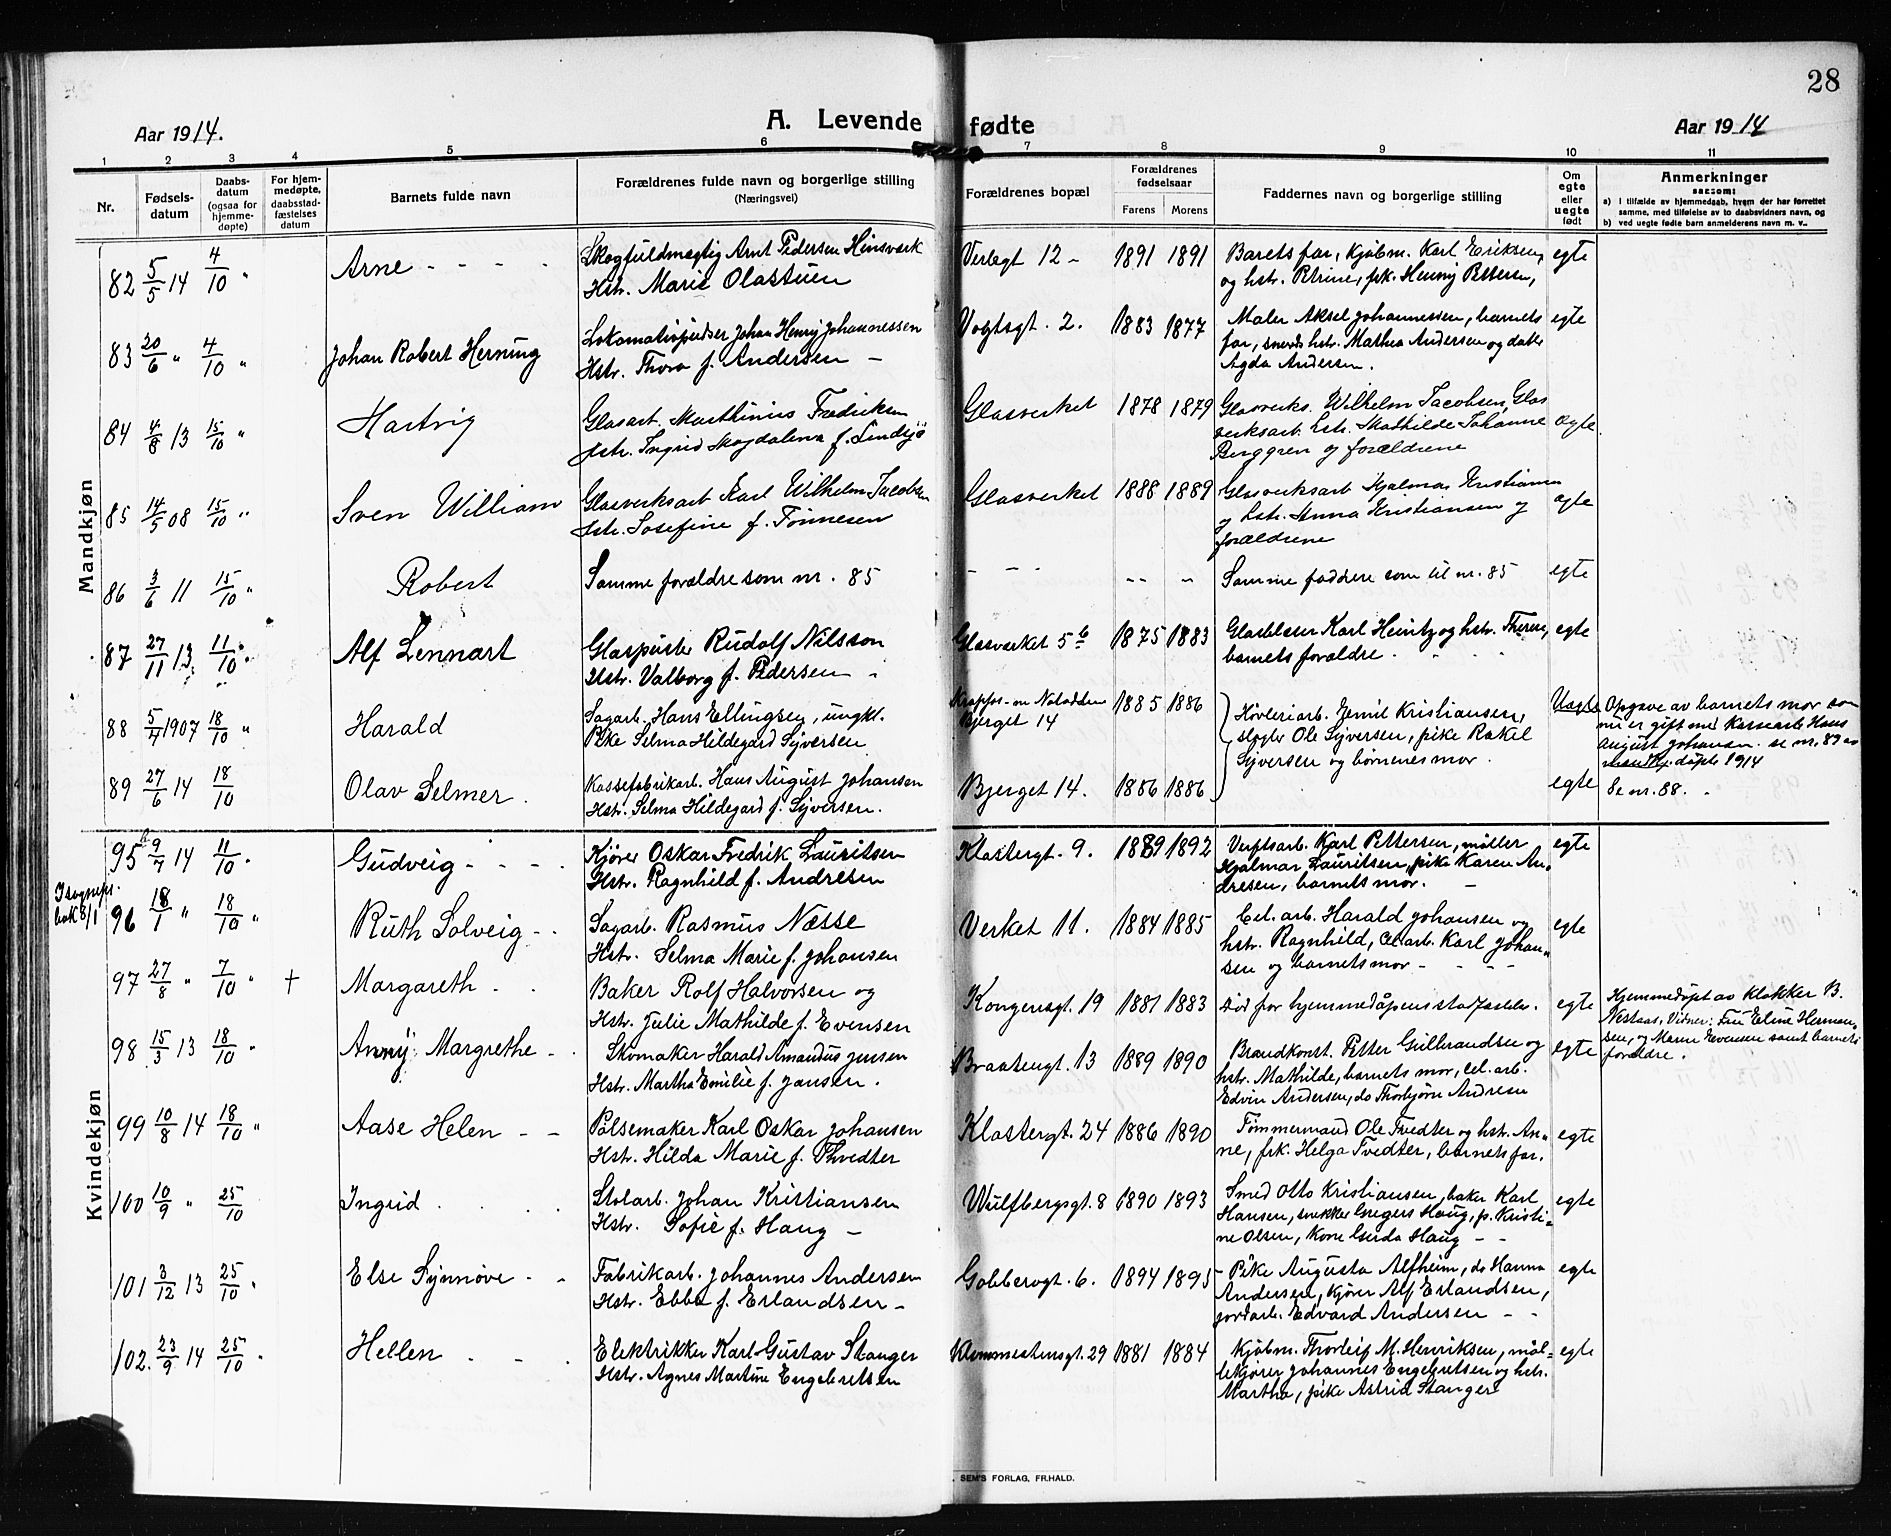 28
Aar 1914.
A. Levende fødte
Aar 1914
1 2 3 4 5 6 7 8 9 10 11
Nr.
Fødsels-
datum
Daabs-
datum
(ogsaa for
hjemme-
døpte)
For hjem-
medøpte,
daabsstad-
fæstelses
datum
Barnets fulde navn
Forældrenes fulde navn og borgerlige stilling
(Næringsvei)
Forældrenes bopæl
Forældrenes
fødselsaar
Farens Morens
Faddernes navn og borgerlige stilling
Om
egte
eller
uegte
født
Anmerkninger
saasom:
a) I tilfælde av hjemmedaab, hvem der har forrettet
samme, med tilføielse av to daabsvidners navn, og
b) ved uegte fødte barn anmelderens navn m. v..
Mandkjøn
82 5/5 14 4/10 " Arne - - - - Skogfuldmegtig Arnt Pedersen Hinsverk Verlegt 12 - 1891 1891 Barets far, kjøbm. Karl Eriksen, egte
Hstr. Marie Olasteien og hstr. Petrine, frk. Henny Pettersen,
83 20/6 " 4/10 " Johan Robert Herning Lokomotivpudser Johan Henry Johannessen Vogtsgt. 2. 1883 1877 Maler Aksel Johannessen, barnets egte
Hstr. Thora f. Andersen - far, smeds hstr. Mathea Andersen og datter
Agda Andersen.
84 4/8 13 15/10 " Hartvig Glasarb. Marthinius Fredriksen Glasverket 1878 1879 Glasverks. Wilhelm Jacobsen, Glas
Hstr. Ingrid Magdalena f. Lindsjö verksarb. hstr. Mathilde Johanne ægte
Berggren og forældrene
85 14/5 08 15/10 " Sven William Glasverksarb Karl Wilhelm Jacobsen Glasverket 1888 1889 Glasverksarb Hjalmar Kristiansen
Hstr. Josefine f. Tønnesen og hstr. Anna Kristiansen og ægte
forældrene
86 3/6 11 15/10 " Robert Samme forældre som nr. 85 - - - -- - Samme faddere som til nr. 85 egte
87 27/11 13 11/10 " Alf Lennart Glaspuster Rudolf Nilsson Glasverket 5 b 1875 1883 Glasblæser Karl Heintz og hstr. Therese, egte
Hstr. Valborg f. Pedersen - barnets forældre.
88 5/4 1907 18/10 " Harald Sagarb. Hans Ellingsen, ungkl. Notodden 1885 1886 Høvleriarb. Emil Kristiansen, Uegte Opgave av barnets mor som
Pike Selma Hildegard Syversen Bjerget 14 sløgter Ole Syversen, pike Rakel nu er gift med Kassearb Hans
Syversen og børnenes mor. August Johansen. se nr. 89 av
mandkj. døpte 1914
89 27/6 14 18/10 Olav Selmer. Kassefabrikarb. Hans August Johansen Bjerget 14. 1886 1886 egte Se nr. 88.
Hstr. Selma Hildegard f. Syversen.
Kvindekjøn
95 9/7 14 11/10 " Gudveig - - - - Kjører Oskar Fredrik Lauritsen Klostergt. 9. 1889 1892 Verftsarb. Karl Pettersen, møller egte
Hstr. Ragnhild f. Andresen Hjalmar Lauritsen, pike Karen An-
dresen, barnets mor. -
I sognepr.
bok 8/1
96 18/1 " 18/10 " Ruth Solveig - - Sagarb. Rasmus Næsse Verket 11. 1884 1885 Cel. arb. Harald Johansen og egte
Hstr. Selma Marie f. Johansen hstr. Ragnhild, cel.arb. Karl Johan-
sen og barnets mor - - - -
97 27/8 " 7/10 " † Margareth - - Baker Rolf Halvorsen og Kongensgt. 19 1881 1883 Død før hjemmedåpens stadfæstelse. egte Hjemmedøpt av klokker B.
Hstr. Julie Mathilde f. Evensen Nestaas, Vidner: Fru Eline Herman-
sen, og Maren Evensen samt barnets
forældre.
98 15/3 13 18/10 " Anny Margrethe - - Skomaker Harald Amandus Jensen Braatengt. 13 1889 1890 Brandkonst. Petter Gulbrandsen og egte
Hstr. Martha Emilie f. Jansen. hstr. Mathilde, barnets mor, cel. arb.
Edvin Andersen, do Thorbjørn Andresen
99 10/8 14 18/10 " Aase Helen - - Pølsemaker Karl Oskar Johansen Klostergt. 24 1886 1890 Tømmermand Ole Tvedter og hst. An- egte
Hstr. Hilda Marie f. Thvedter ne, frk. Helga Tvedter, barnets far.
100 10/9 " 25/10 Ingrid . . . . Stolarb. Johan Kristiansen Wulfbergsgt. 8 1890 1893 Smed Otto Kristiansen, baker Karl egte
Hstr. Sofie f. Haug - Hansen, snekker Gregers Haug, p. Kristi-
ne Olsen, Kone Gerda Haug - -
101 3/12 13 25/10 " Else Synnøve - - Fabrikarb. Johannes Andersen Gobbervgt. 6. 1894 1895 Pike Augusta Alfheim, do Hanna egte
Hstr. Ebba f. Erlandsen - Andersen, kjører Alf Erlandsen,
jordarb. Edvard Andersen - -
102. 23/9 14 25/10 " Hellen - - - Elektrikker Karl Gustav Stanger Klommestensgt. 29 1881 1884 Kjøbm. Thorleif M. Henriksen, møl- egte
Hstr. Agnes Martine Engebretsen lekjører Johannes Engebretsen og hstr.
Martha, pike Astrid Stanger
SEM'S FORLAG, FR.HALD.